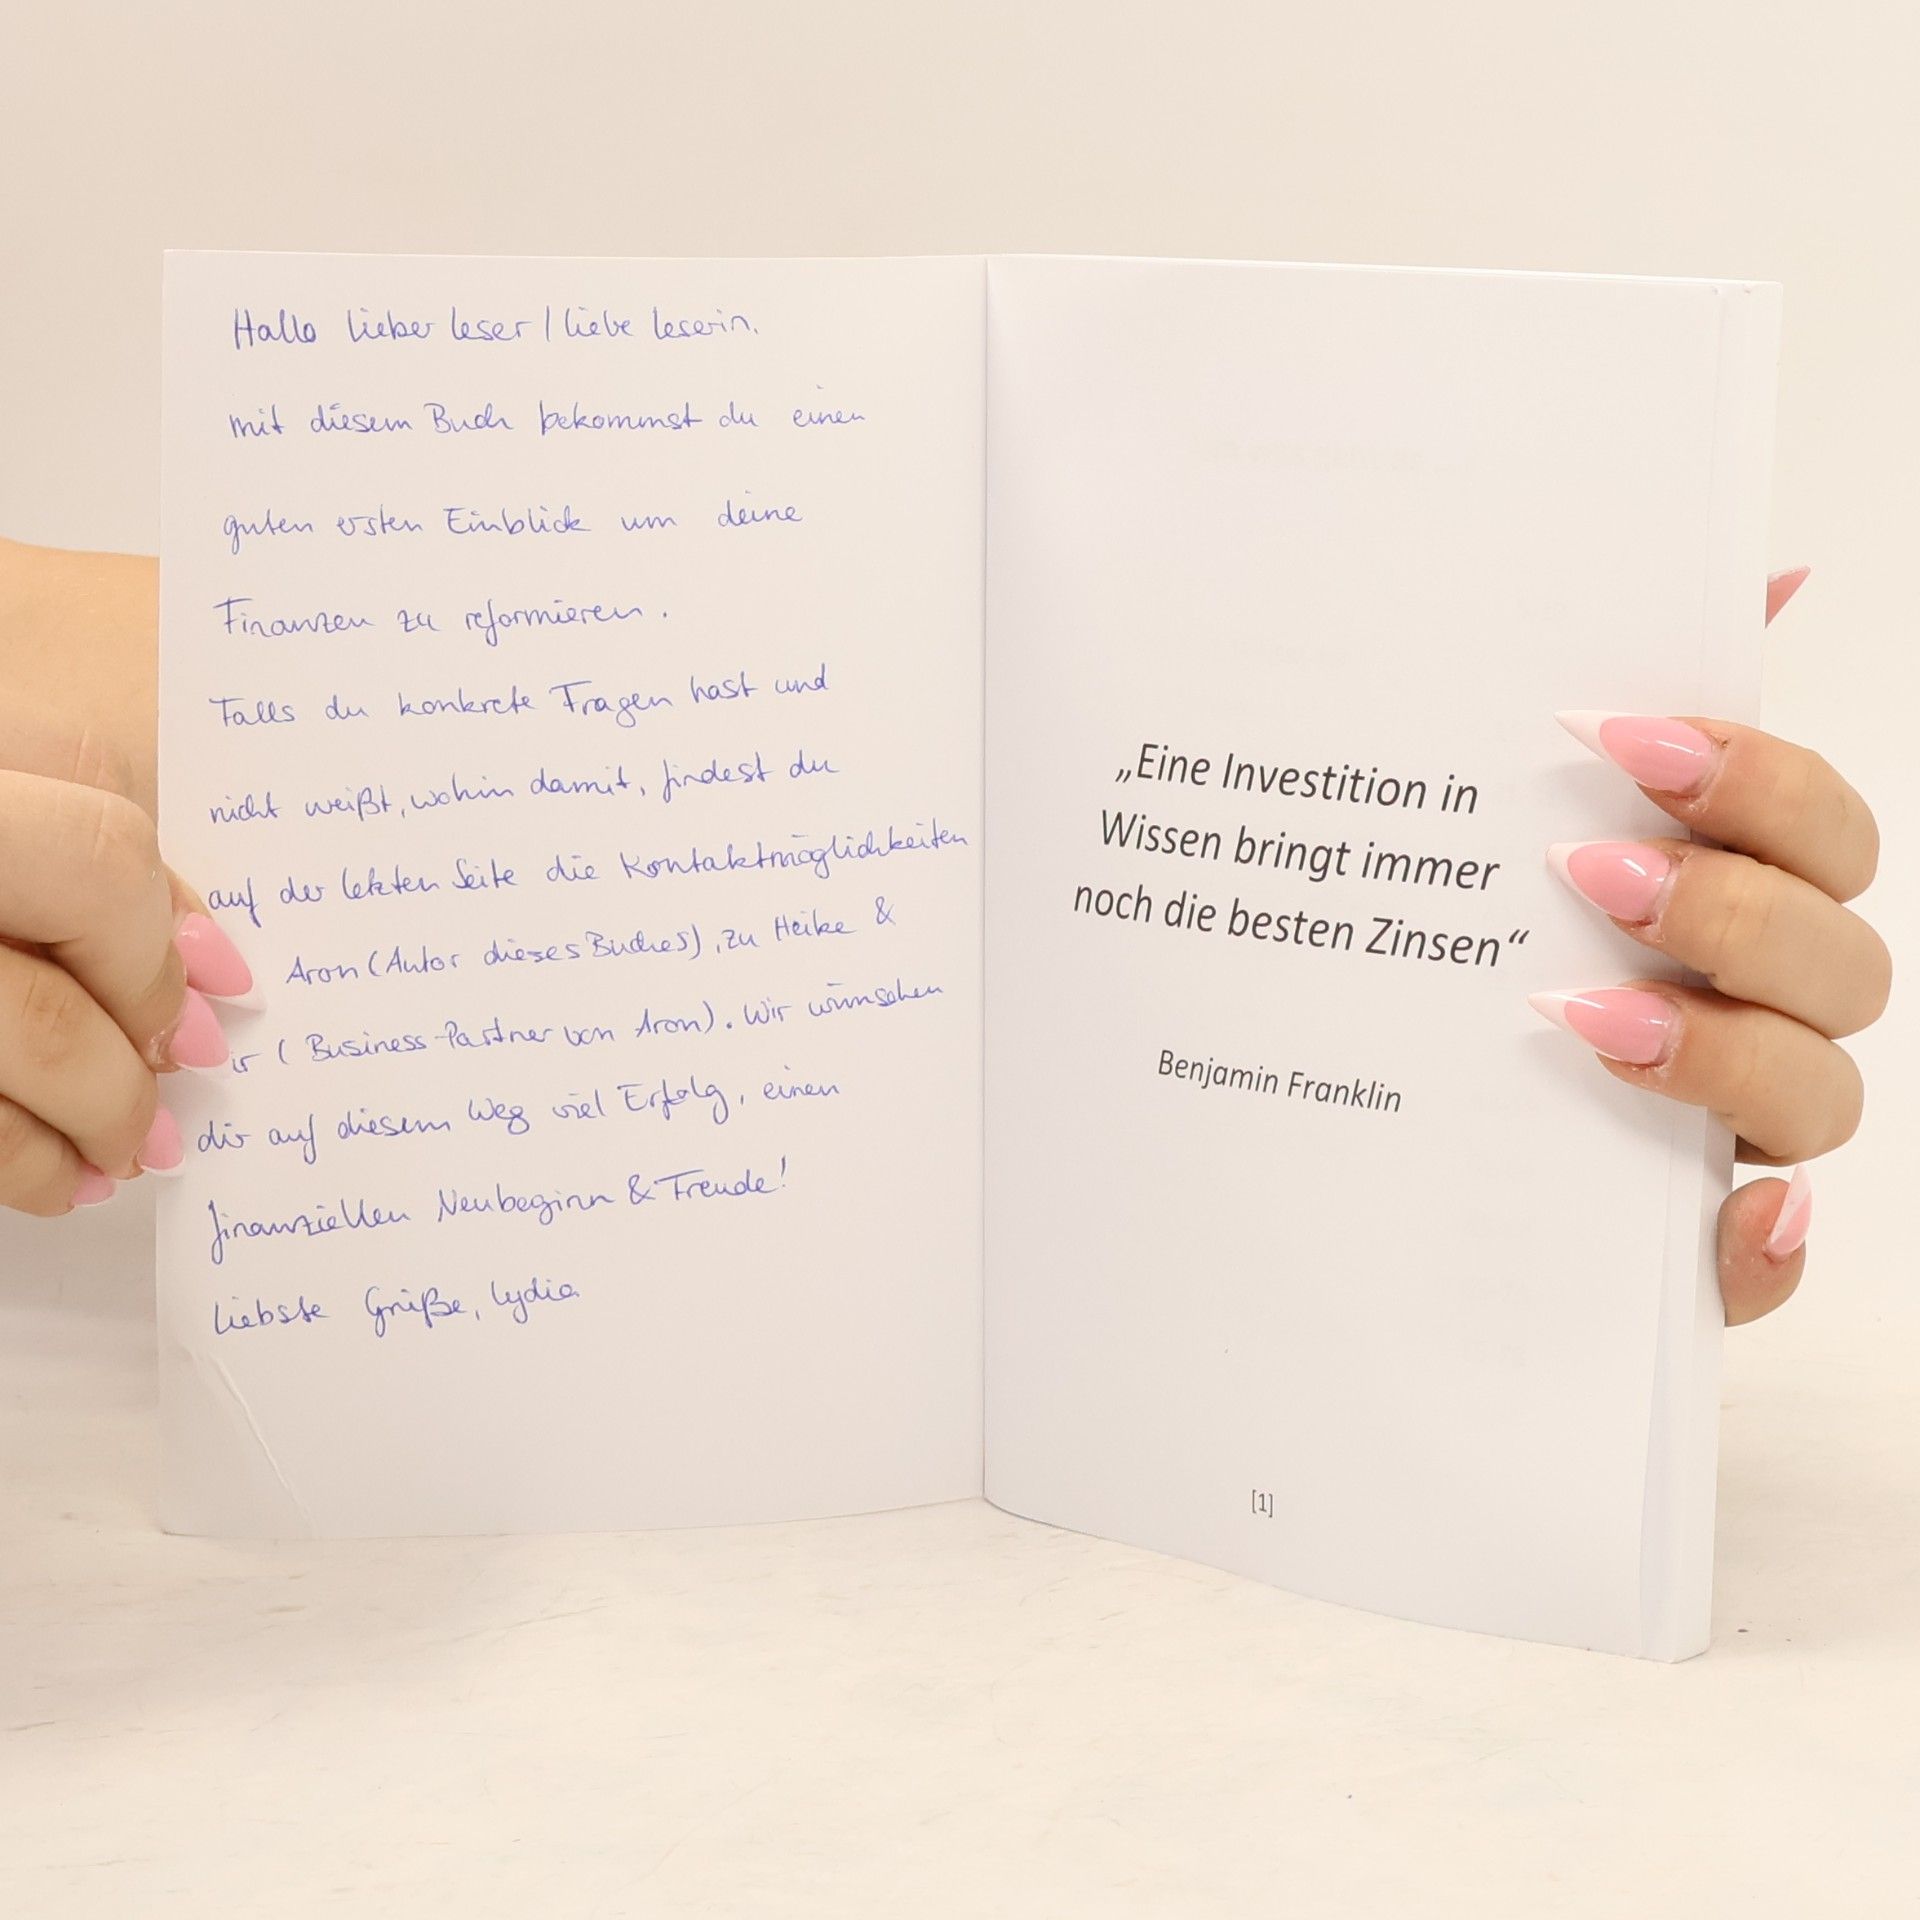 Hallo lieber Leser / liebe Leserin,
mit diesem Buch bekommst du einen
guten ersten Einblick um deine
Finanzen zu reformieren.
Falls du konkrete Fragen hast und
nicht weißt, wohin damit, findest du
auf der letzten Seite die Kontaktmöglichkeiten
Aron (Autor dieses Buches), zu Heike &
ir (Business-Partner von Aron). Wir wünschen
dir auf diesem Weg viel Erfolg, einen
finanziellen Neubeginn & Freude!
Liebste Grüße, Lydia
„Eine Investition in
Wissen bringt immer
noch die besten Zinsen“
Benjamin Franklin
[1]